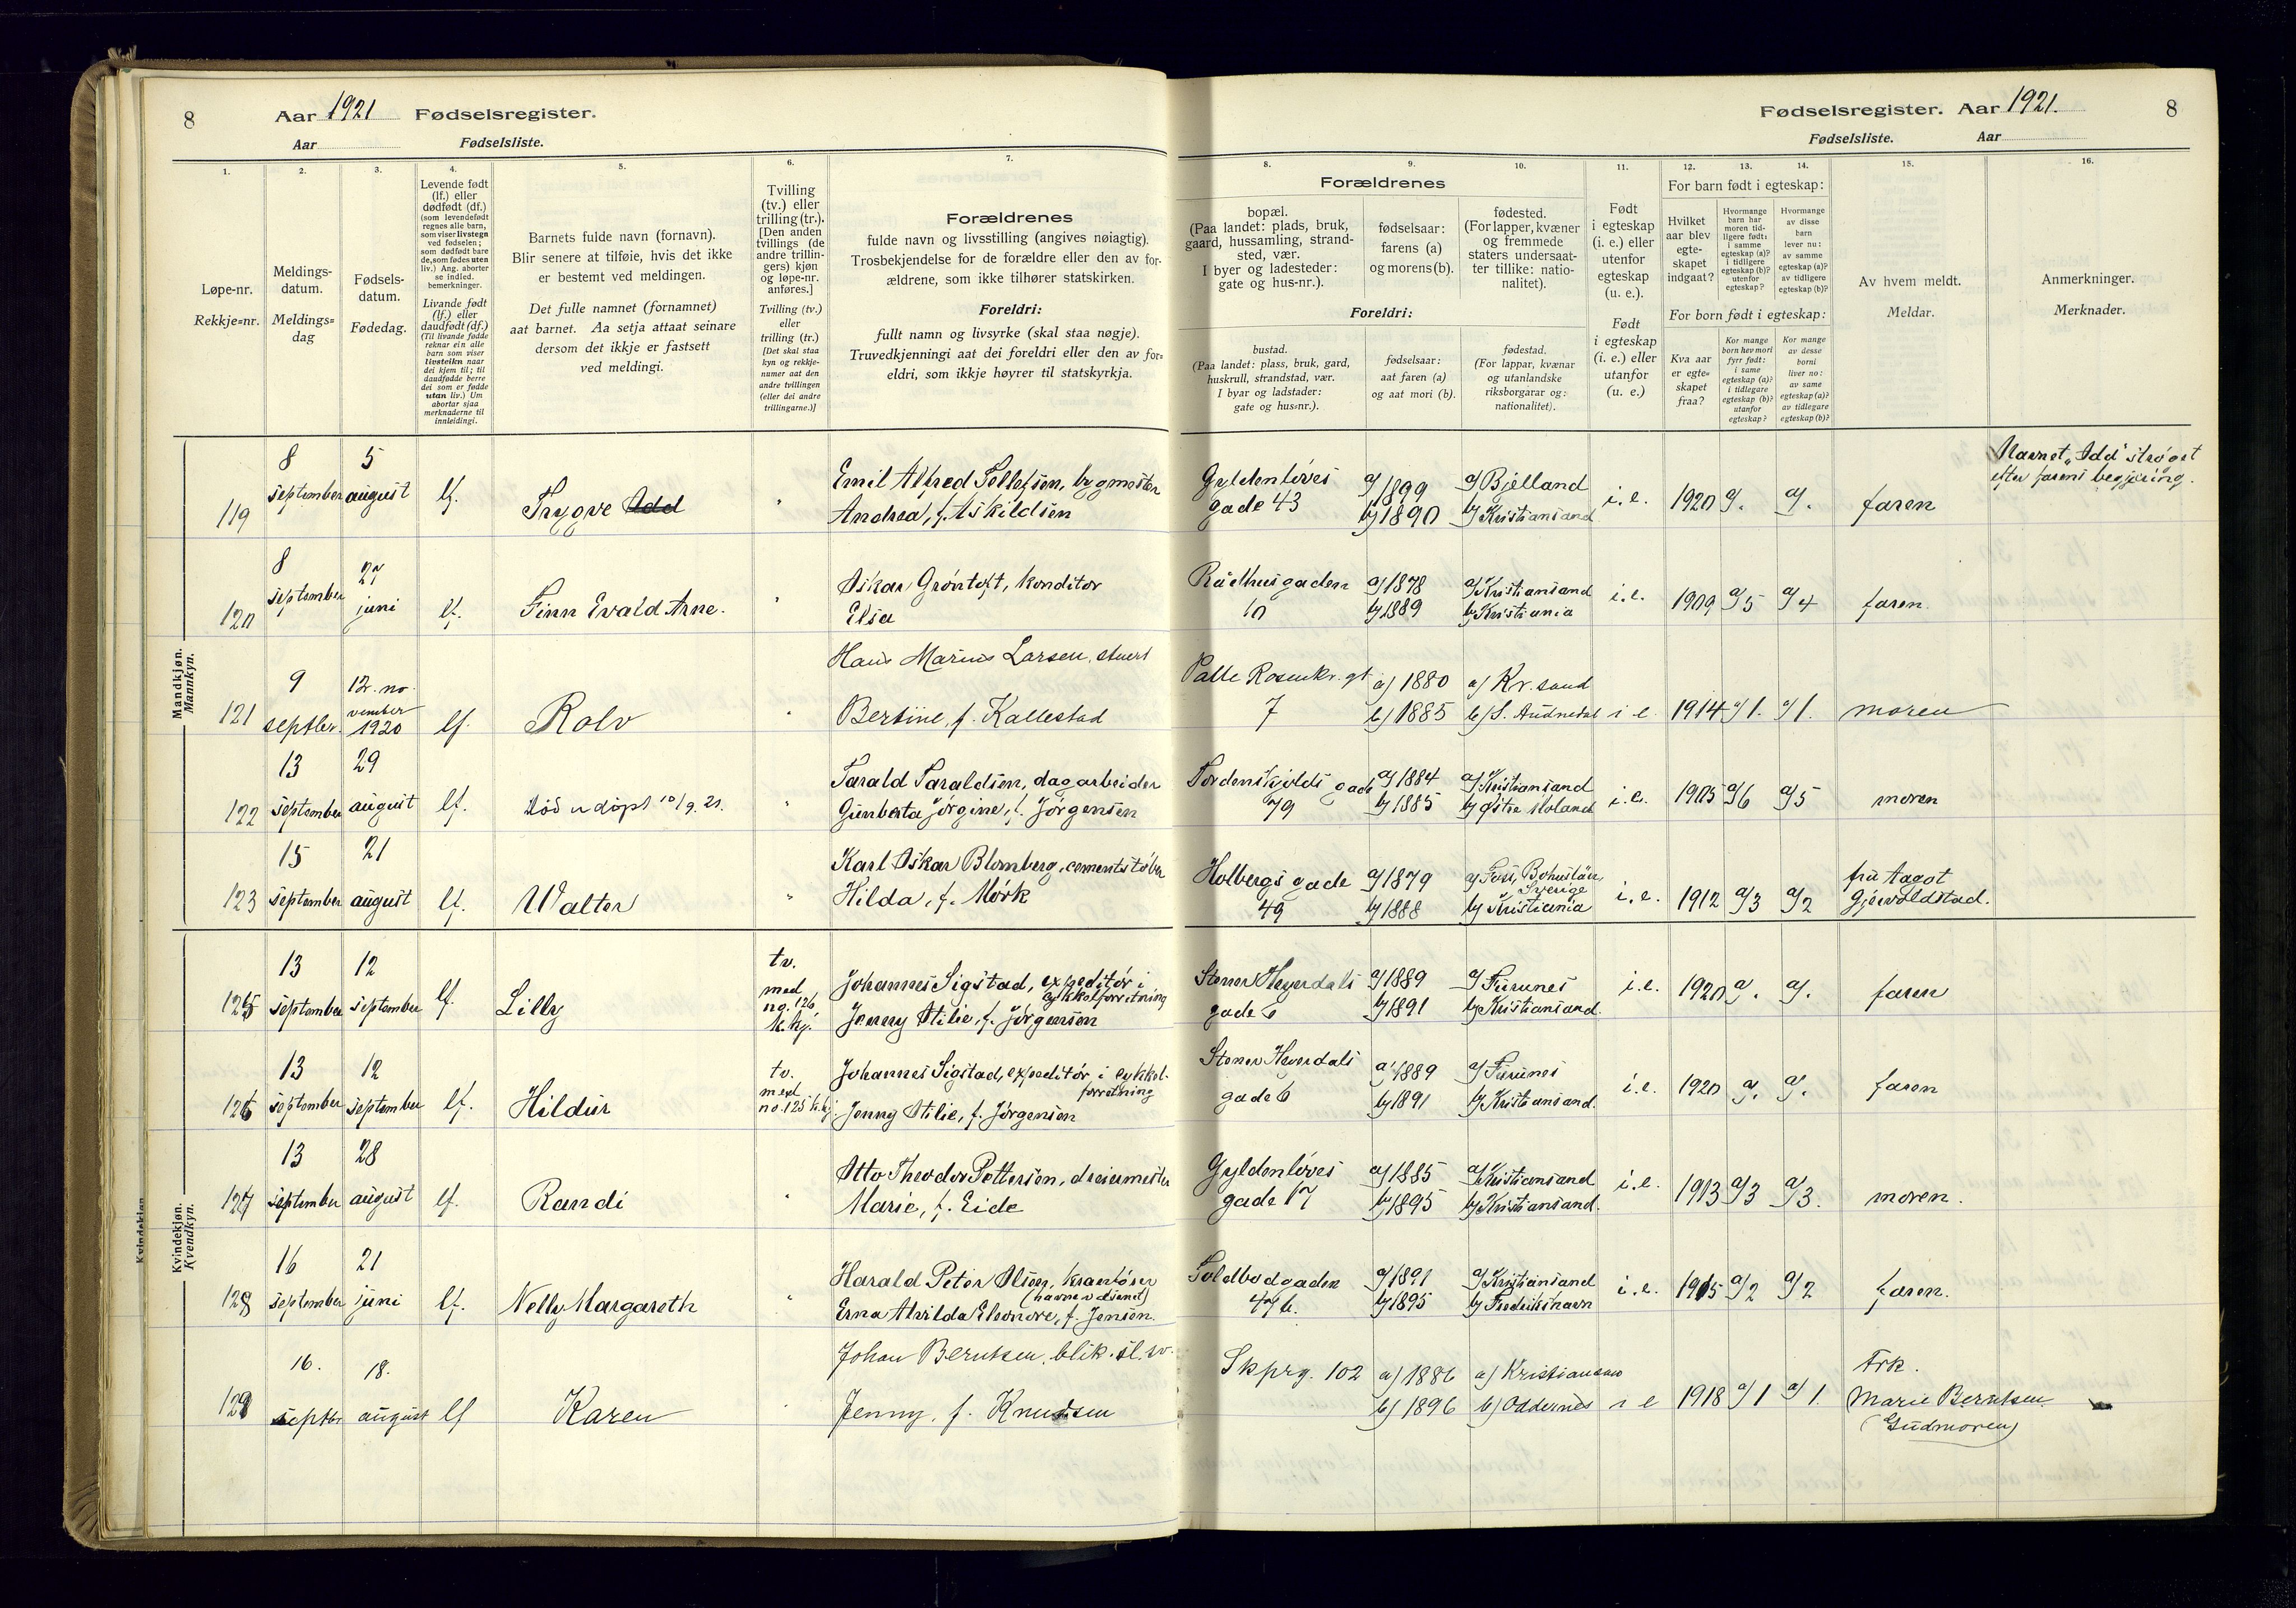 8 Aar 1921 Fødselsregister.
Aar Fødselsliste.
Fødselsregister. Aar 1921. 8
Fødselsliste. Aar
1. 2. 3. 4. 5. 6. 7.
Løpe-nr.
Rekkje=nr.
Meldings-
datum.
Meldings=
dag
Fødsels-
datum.
Fødedag.
Levende født
(lf.) eller
dødfødt (df.)
(som levendefødt
regnes alle barn,
som viser livstegn
ved fødselen;
som dødfødt bare
de, som fødes uten
liv.) Ang. aborter
se indled.
bemerkninger.
Livande født
(lf.) eller
daudfødt (df.)
(Til livande fødde
reknar ein alle
barn som viser
livsteikn naar
dei kjem til; til
daudfødde berre
dei som er fødde
utan liv.) Um
abortar sjaa
merknaderne til
innleidingi.
Barnets fulde navn (fornavn).
Blir senere at tilføie, hvis det ikke
er bestemt ved meldingen.
Det fulle namnet (fornamnet)
aat barnet. Aa setja attaat seinare
dersom det ikkje er fastsett
ved meldingi.
Tvilling
(tv.) eller
trilling (tr.).
[Den anden
tvillings (de
andre trillin-
gers) kjøn
og løpe-nr.
anføres.]
Tvilling (tv.)
eller
trilling (tr.)
[Det skal staa
kyn og rekkje-
numer aat den
andre tvillingen
(eller dei andre
trillingarne.)]
Forældrenes
fulde navn og livsstilling (angives nøiagtig).
Trosbekjendelse for de forældre eller den av for-
ældrene, som ikke tilhører statskirken.
Foreldri:
fullt namn og livsyrke (skal staa nøgje).
Truvedkjenningi aat dei foreldri eller den av for=
eldri, som ikkje høyrer til statskyrkja.
8. 9. 10. 11. 12. 13. 14. 15. 16.
Forældrenes
bopæl.
(Paa landet: plads, bruk,
gaard, hussamling, strand-
sted, vær.
I byer og ladesteder:
gate og hus-nr.).
fødselsaar:
farens (a)
og morens (b).
fødested.
(For lapper, kvæner
og fremmede
staters undersaat-
ter tillike: natio-
nalitet).
Foreldri:
bustad.
(Paa landet: plass, bruk, gard,
huskrull, strandstad, vær.
I byar og ladstader:
gate og hus=nr.).
fødselsaar:
aat faren (a)
og aat mori (b).
fødestad.
(For lappar, kvænar
og utanlandske
riksborgarar og:
nationalitet).
Født
i egteskap
(i. e.) eller
utenfor
egteskap
(u. e.).
Født
i egteskap
(i. e.) eller
utanfor
(u. e.)
For barn født i egteskap:
Hvilket
aar blev
egte-
skapet
indgaat?
Hvormange
barn har
moren tid-
ligere født:
i samme
egteskap (a)?
i tidligere
egteskap (b)?
utenfor
egteskap?
Hvormange
av disse
barn
lever nu:
av samme
egteskap (a)?
av tidligere
egteskap (b)?
For born født i egteskap:
Kva aar
er egte=
skapet
fraa?
Kor mange
born hev mori
fyrr født:
i same
egteskap (a)?
i tidlegare
egteskap (b)?
utanfor
egteskap?
Kor mange
av desse
borni
liver no:
av same
egteskap (a)?
av tidlegare
egteskap (b)?
Av hvem meldt.
Meldar.
Anmerkninger.
Merknader.
Mandkjøn.
Mannkyn.
119 8 september 5 august lf. Trygve Odd " Emil Alfred Tellefsen, bygmester
Andrea, f. Askildsen
Gyldenløves gade 43 a) 1899 b) 1890 a) Bjelland b) Kristiansand i. e. 1920 a) . a) . faren
Navnet „Odd" strøget
efter farens begjæring.
120 8 september 27 juni lf. Finn Evald Arne. " Oskar Grøntoft, konditor
Elsa
Rådhusgaden 10 a) 1878 b) 1889 a) Kristiansand b) Kristiania i. e. 1909 a) 5 a) 4 faren.
121 9 septbr. 12. november 1920 lf. Rolv " Hans Marius Larsen, stuert
Bertine, f. Kallestad
Palle Rosenkr. gt 7 a) 1880 b) 1885 a) Kr.sand b) S. Audnedal i e. 1914 a) 1. a) 1. moren
122 13 september 29 august lf. Død udøpt 10/9. 21. " Tarald Taraldsen, dagarbeider
Gunberta Jørgine, f. Jørgensen
Tordenskjolds gade 79 a) 1884 b) 1885 a) Kristiansand b) Østre Moland i. e. 1905 a) 6 a) 5 moren
123 15 september 21 august lf. Walter " Karl Oskar Blomberg, cementstøber
Hilda, f. Mørk
Holbergs gade 49 a) 1879 b) 1888 a) Bohuslän Sverige b) Kristiania i. e. 1912 a) 3 a) 2 fru Aagot
Gjervoldstad.
Kvindekjøn.
Kvendkyn.
125 13 september 12 september lf. Lilly tv. med no. 126 k.kj. Johannes Sigstad, expeditør i
cykkelforretning
Jenny Otilie, f. Jørgensen
Stener Heyerdals gade 6 a) 1889 b) 1891 a) Furunes b) Kristiansand. i. e. 1920 a) . a) . faren
126 13 september 12 september lf. Hildur tv. med no. 125 k.kj. Johannes Sigstad, expeditør i cykkel-
forretning
Jenny Otilie, f. Jørgensen
Stener Heyerdals gade 6 a) 1889 b) 1891 a) Furunes b) Kristiansand. i. e. 1920 a) . a) . faren
127 13 september 28 august lf. Randi " Otto Theodor Pettersen, dreiermester
Marie, f. Eide
Gyldenløves gade 17 a) 1885 b) 1895 a) Kristiansand b) Kristiansand. i. e. 1913 a) 3 a) 3. moren.
128 16 september 21 juni lf. Nelly Margareth " Harald Peter Olsen, kranfører
(havnevæsenet)
Erna Alvilda Eleonore, f. Jensen.
Toldbodgaden 47 b. a) 1891 b) 1895 a) Kristiansand b) Fredrikshavn i. e. 1915 a) 2 a) 2 faren.
129 16. septbr 18. august lf Karen " Johan Berntsen, blik.sl.sv.
Jenny, f. Knudsen
Skprg. 102 a) 1886 b) 1896 a) Kristiansand b) Oddernes i e 1918 a) 1 a) 1. Frk.
Marie Berntsen.
(Gudmoren)